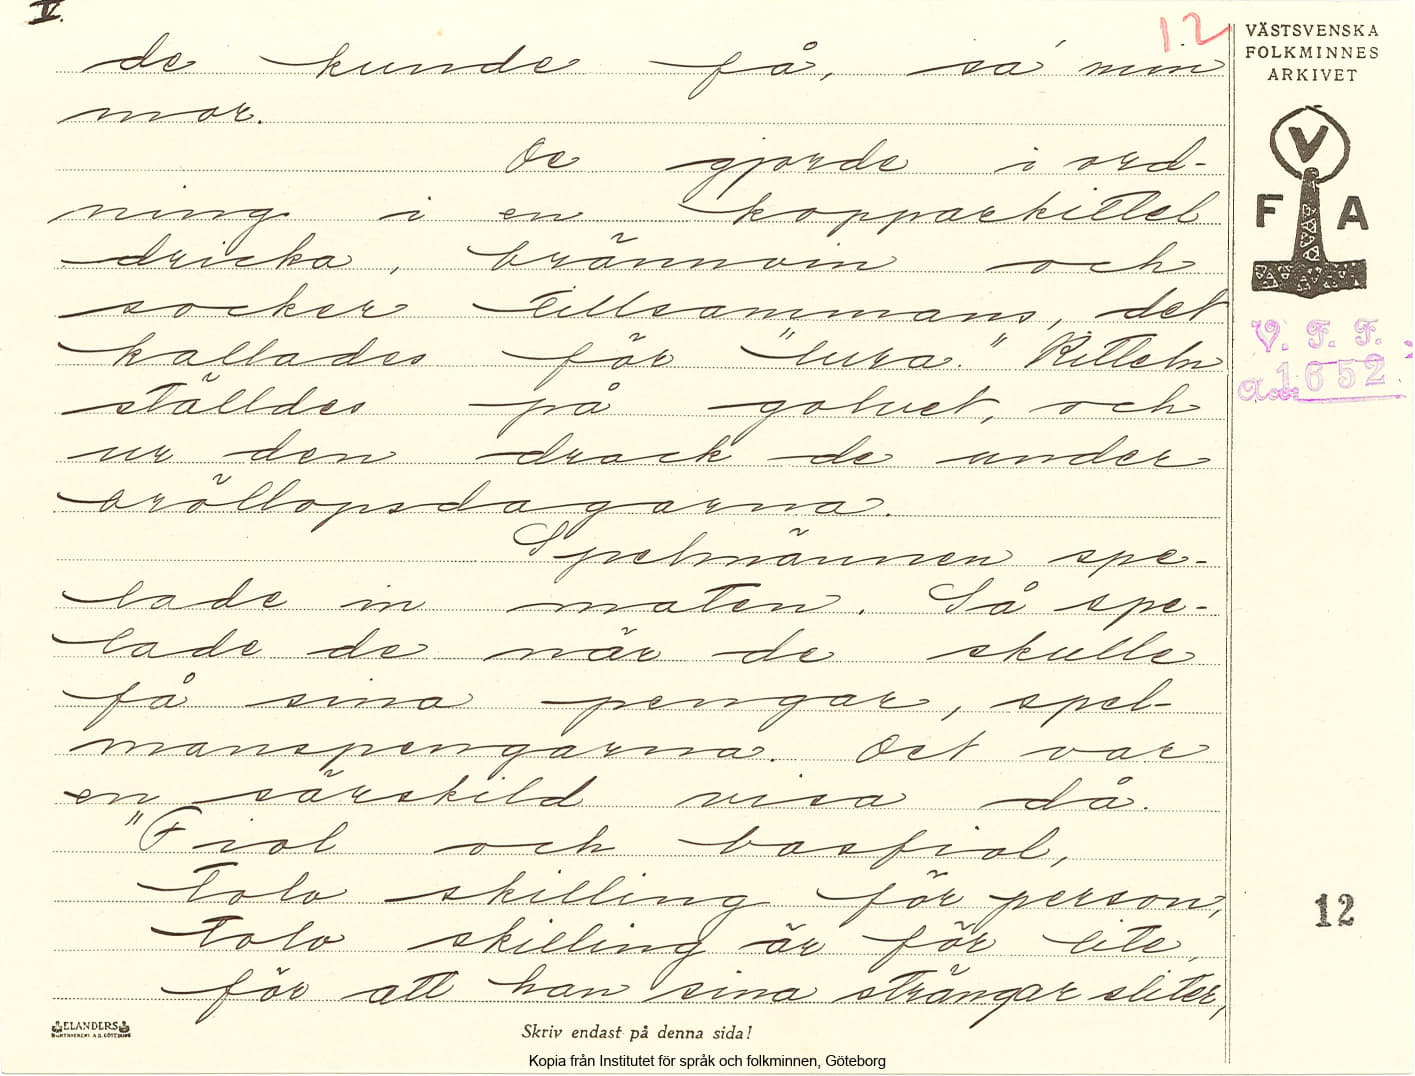 V.
12
de kunde få, sa' min
mor.
De gjorde i ord-
ning i en kopparkittel
dricka, brännvin och
socker tillsammans, det
kallades för "lura." Kitteln
ställdes på golvet, och
ur den drack de under
bröllopsdagarna.
Spelmännen spe-
lade in maten. Så spe-
lade de när de skulle
få sina pengar, spel-
manspengarna. Det var
en särskild visa då.
"Fiol och basfiol,
tolv skilling för person,
tolv skilling är för lite,
för att han sina strängar sliter,
VÄSTSVENSKA
FOLKMINNES
ARKIVET
V
F A
V. F. F.
Acc: 1652
12
ELANDERS
Skriv endast på denna sida!
Kopia från Institutet för språk och folkminnen, Göteborg